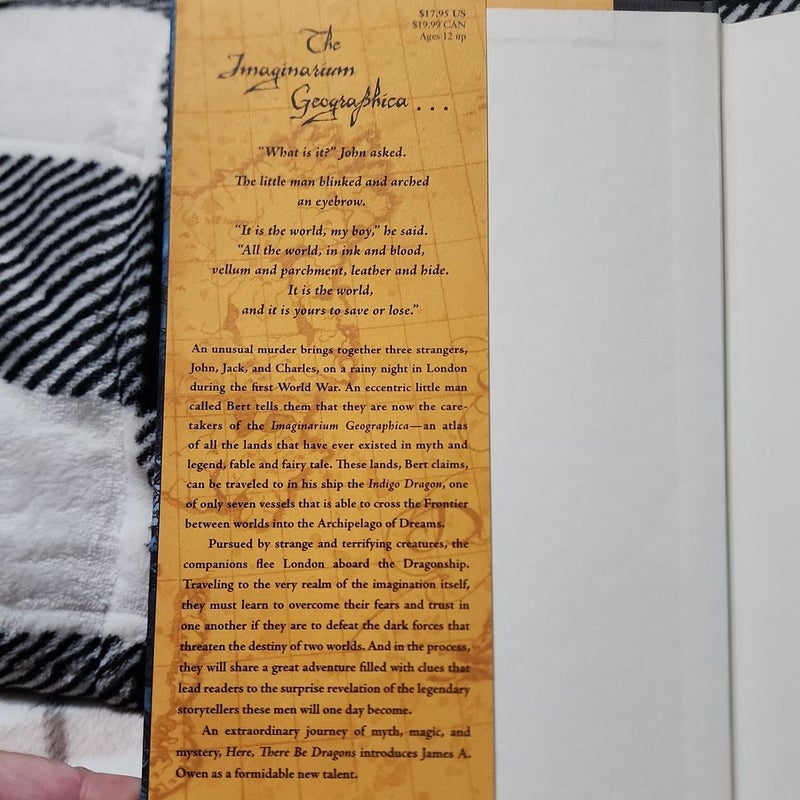 $17.95 US
$19.99 CAN
Ages 12 up
The
Imaginarium
Geographica . . .
“What is it?” John asked.
The little man blinked and arched
an eyebrow.
“It is the world, my boy,” he said.
“All the world, in ink and blood,
vellum and parchment, leather and hide.
It is the world,
and it is yours to save or lose.”
An unusual murder brings together three strangers,
John, Jack, and Charles, on a rainy night in London
during the first World War. An eccentric little man
called Bert tells them that they are now the care-
takers of the Imaginarium Geographica—an atlas
of all the lands that have ever existed in myth and
legend, fable and fairy tale. These lands, Bert claims,
can be traveled to in his ship the Indigo Dragon, one
of only seven vessels that is able to cross the Frontier
between worlds into the Archipelago of Dreams.
Pursued by strange and terrifying creatures, the
companions flee London aboard the Dragonship.
Traveling to the very realm of the imagination itself,
they must learn to overcome their fears and trust in
one another if they are to defeat the dark forces that
threaten the destiny of two worlds. And in the process,
they will share a great adventure filled with clues that
lead readers to the surprise revelation of the legendary
storytellers these men will one day become.
An extraordinary journey of myth, magic, and
mystery, Here, There Be Dragons introduces James A.
Owen as a formidable new talent.